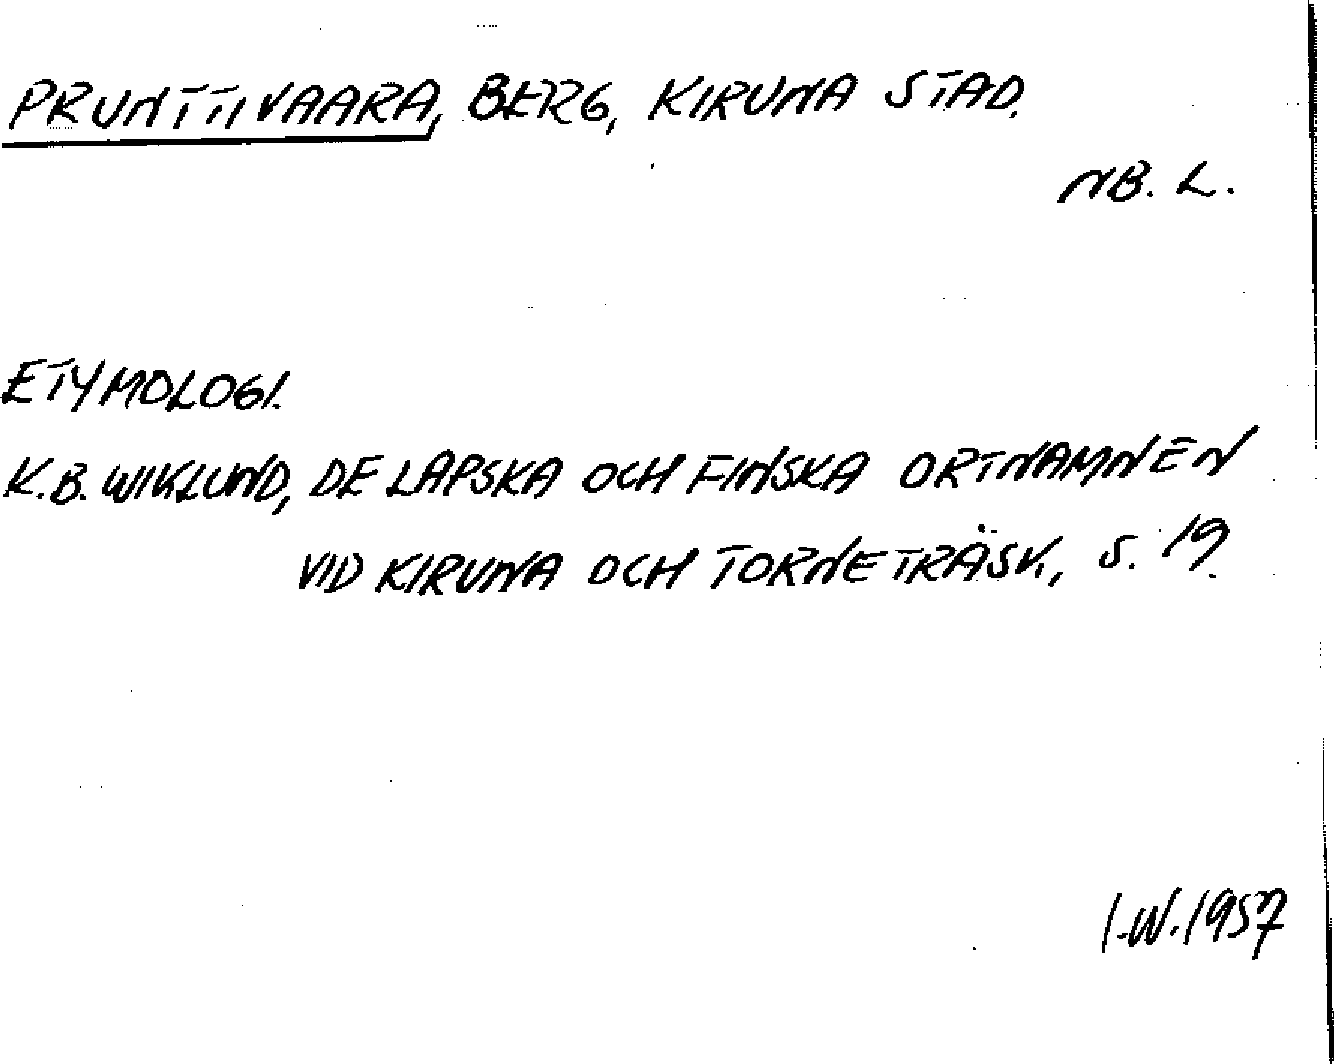 PRUNTTIVAARA, BERG, KIRUNA STAD.
NB. L.
ETYMOLOGI.
K.B. WIKLUND, DE LAPSKA OCH FINSKA ORTNAMNEN
VID KIRUNA OCH TORNETRÄSK, S. 19.
I.W. 1957